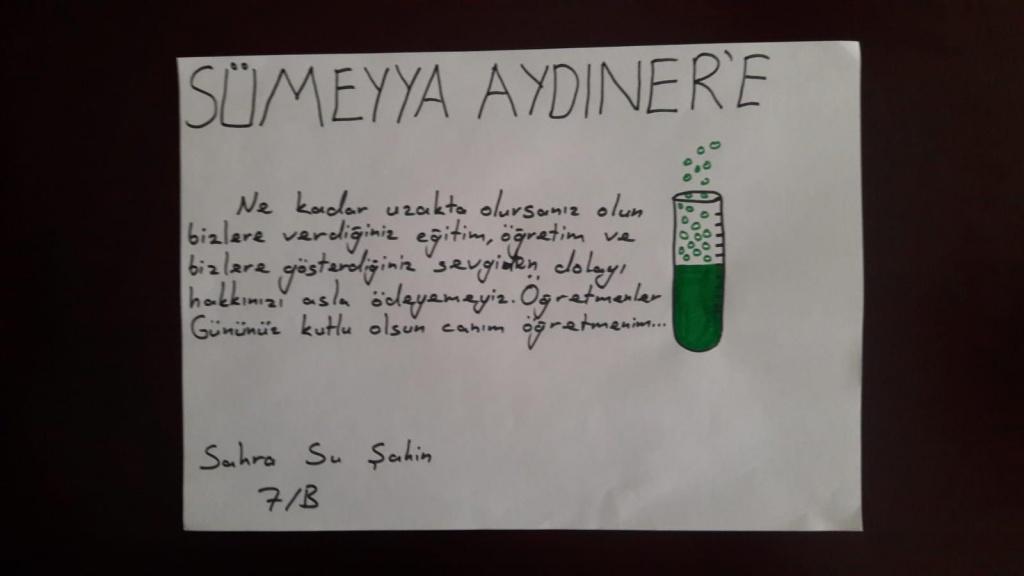 SÜMEYYA AYDINER'E
Ne kadar uzakta olursanız olun
bizlere verdiğiniz eğitim, öğretim ve
bizlere gösterdiğiniz sevginden dolayı
hakkınızı asla ödeyemeyiz. Öğretmenler
Gününüz kutlu olsun canım öğretmenim...
Sahra Su Şahin
7/B